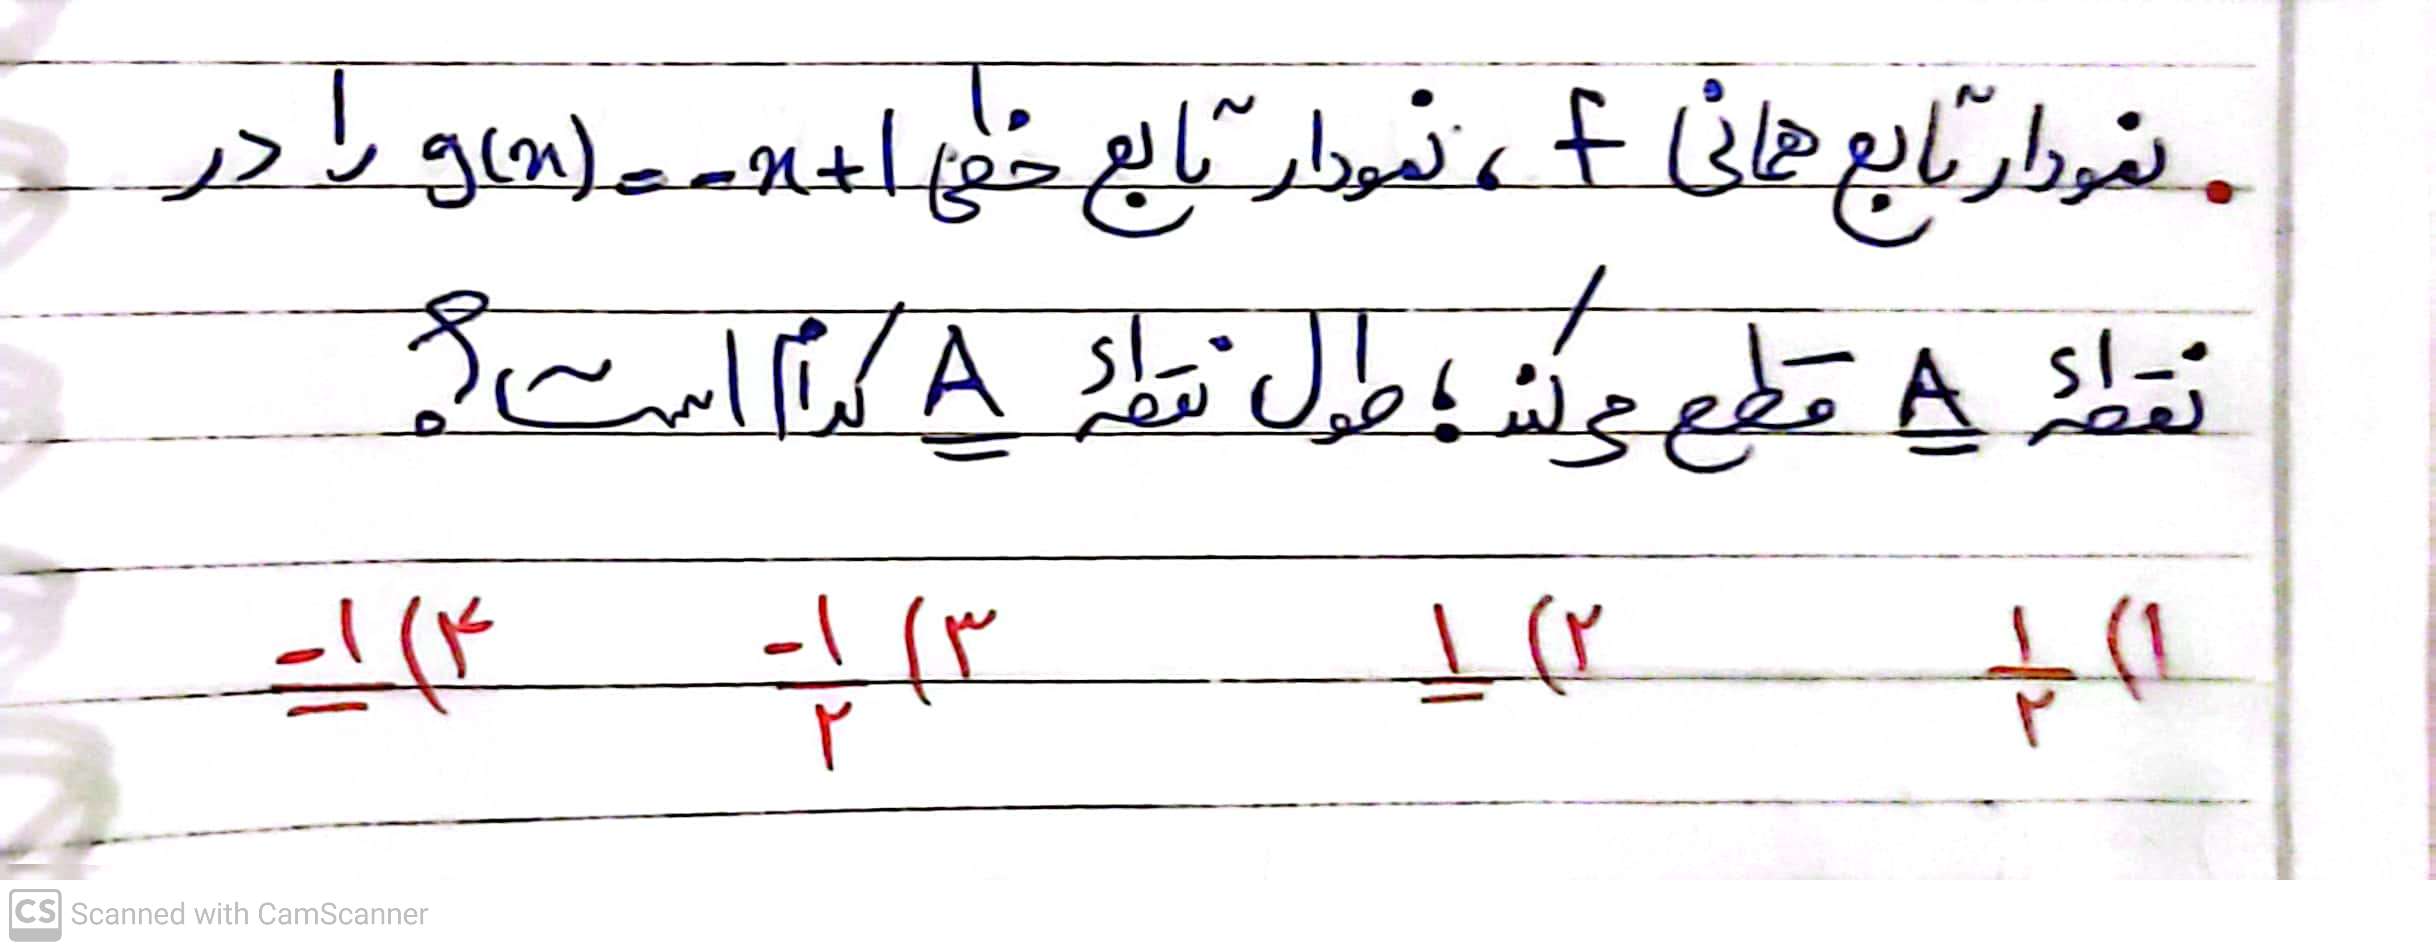 . نمودار تابع همانی f ، نمودار تابع خطی g(x)=-x+1 را در
نقطهٔ A قطع می‌کند؛ طول نقطهٔ A کدام است؟
۱) ۱/۲ ۲) ۱ ۳) -۱/۲ ۴) -۱
CS Scanned with CamScanner